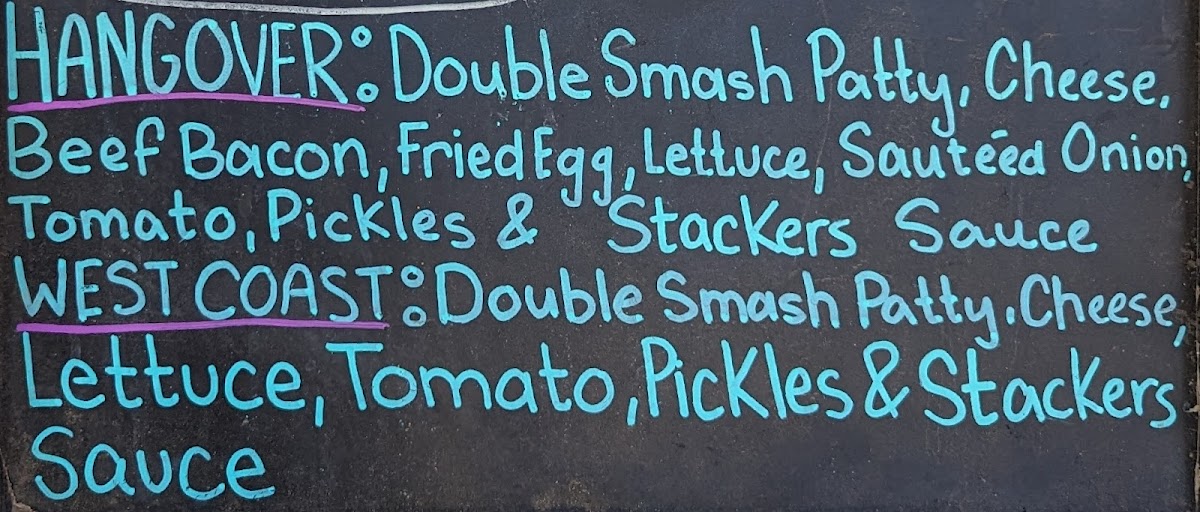 HANGOVER: Double Smash Patty, Cheese,
Beef Bacon, Fried Egg, Lettuce, Sautéed Onion,
Tomato, Pickles & Stackers Sauce
WEST COAST: Double Smash Patty, Cheese,
Lettuce, Tomato, Pickles & Stackers
Sauce